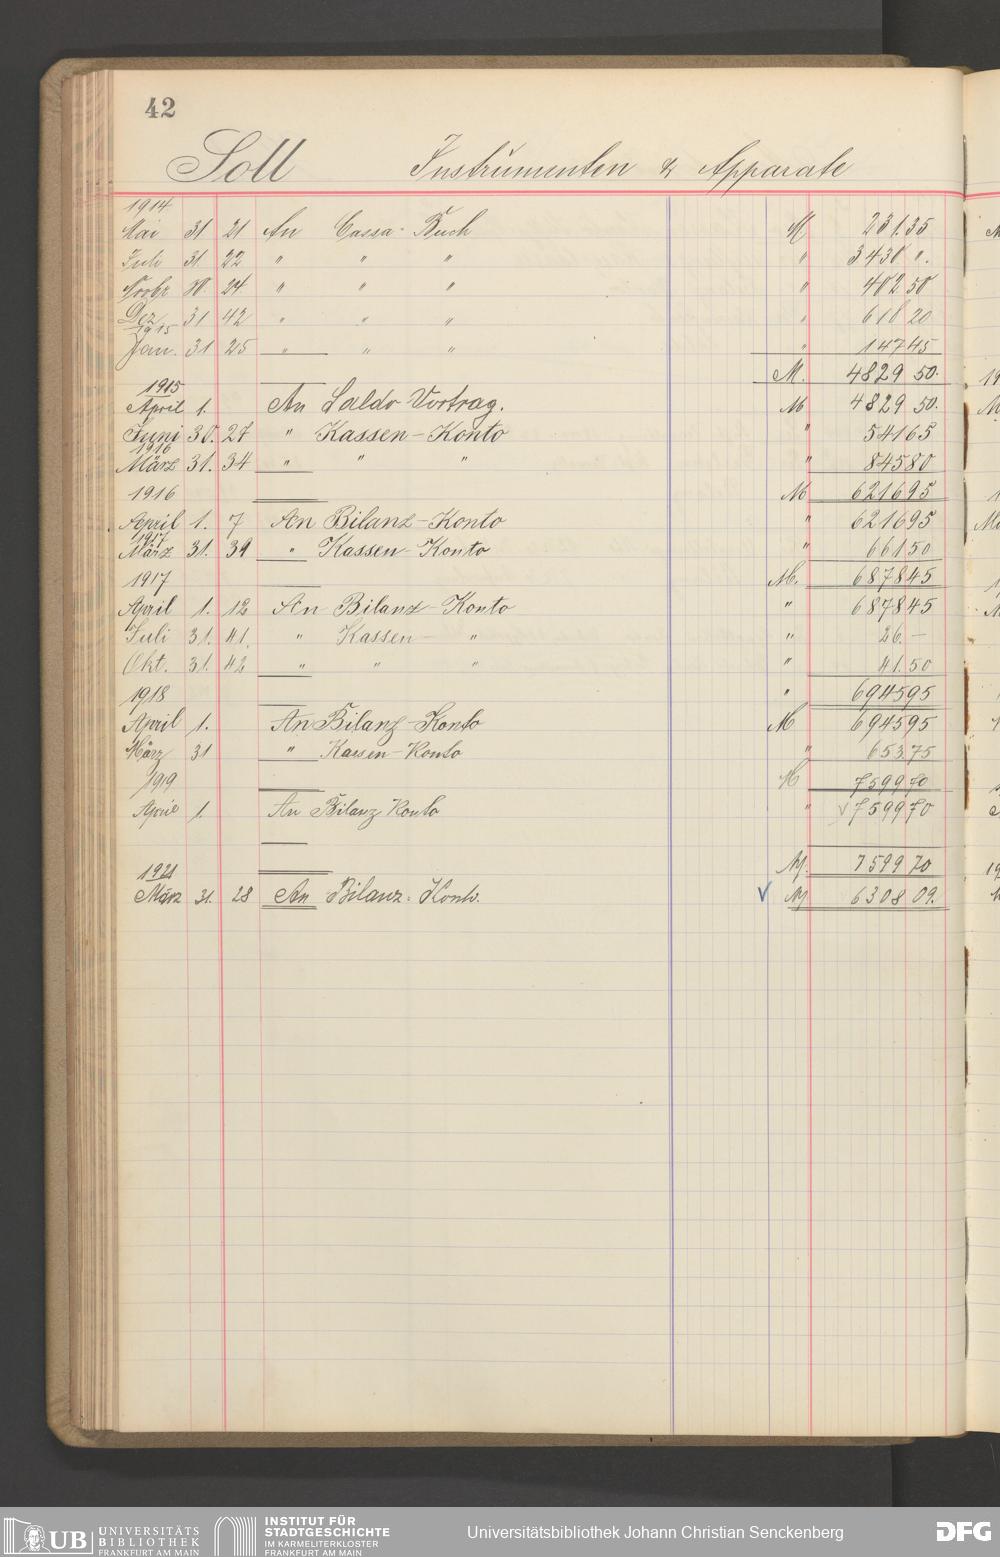 42
Soll Instrumenten & Apparate
1914
Mai 31 21 An Cassa-Buch M 231.35
Juli 31 22 " " " " 3430 ".
Novbr 30. 24 " " " " 402 50
Dez 31 42 " " " " 618 20
1915
Jan. 31 25 " " " " 147 45
M. 4829 50.
1915
April 1. An Saldo Vortrag. M 4829 50.
Juni 30. 27 " Kassen-Konto " 541 65
1916
März 31. 34 " " " " 845 80
1916 M 6216 95
April 1. 7 An Bilanz-Konto " 6216 95
1917
März 31. 39 " Kassen-Konto " 661 50
1917 M. 6878 45
April 1. 12 An Bilanz-Konto " 6878 45
Juli 31. 41. " Kassen- " " 26.—
Okt. 31. 42 " " " " 41.50
1918 " 6945 95
April 1. An Bilanz-Konto M 6945 95
März 31 " Kassen-Konto " 653.75
1919 M 7599 70
April 1. An Bilanz Konto " √ 7599 70
1921 M. 7599 70
März 31. 28 An Bilanz-Konto. √ M 6308 09.
UB UNIVERSITÄTS
BIBLIOTHEK
FRANKFURT AM MAIN
INSTITUT FÜR
STADTGESCHICHTE
IM KARMELITERKLOSTER
FRANKFURT AM MAIN
Universitätsbibliothek Johann Christian Senckenberg
DFG